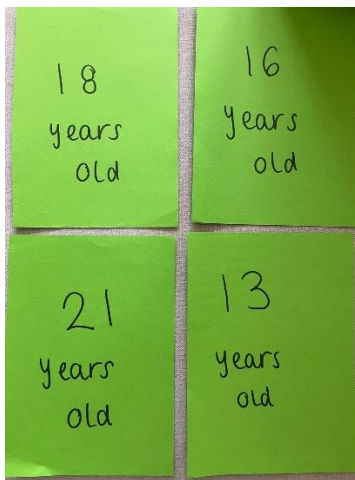 18
years
old
16
years
old
21
years
old
13
years
old